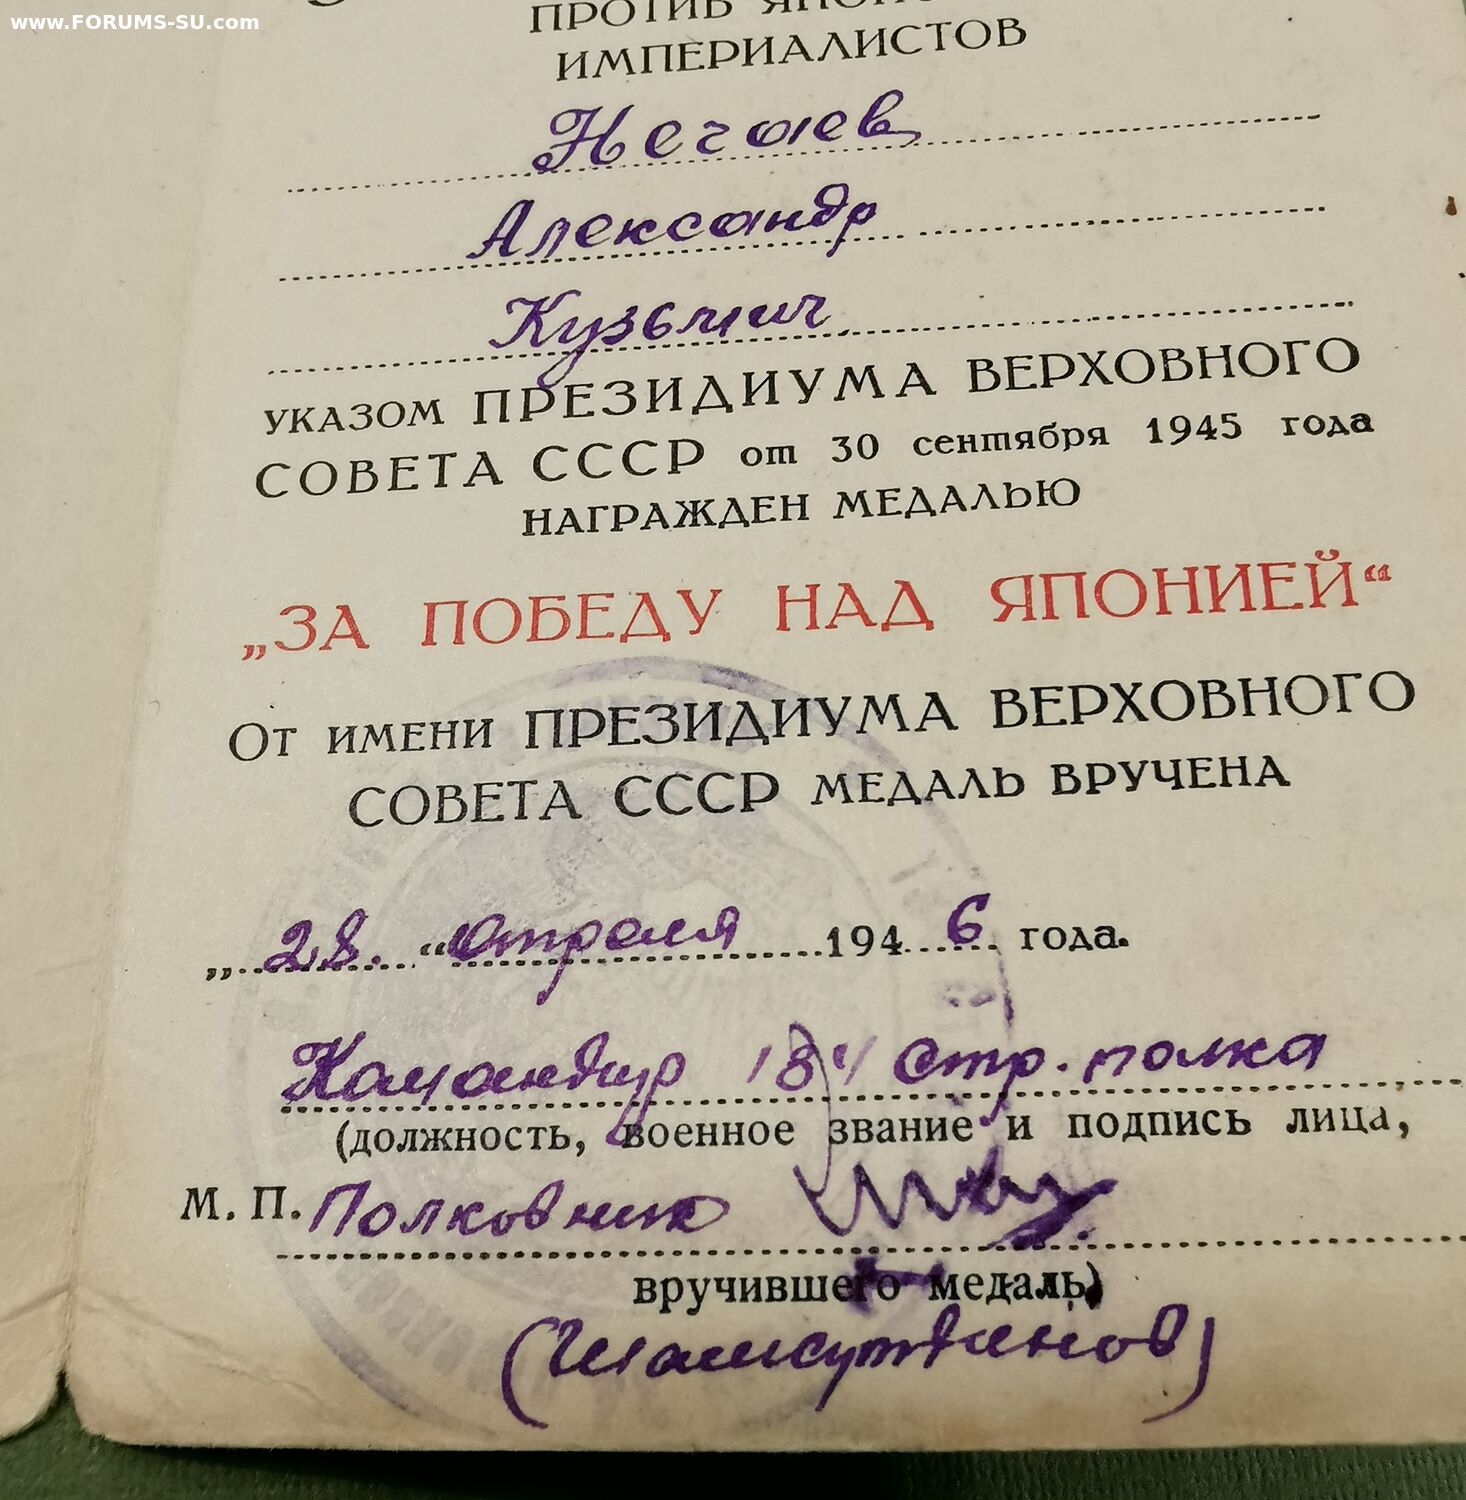 www.FORUMS-SU.com
ПРОТИВ
ИМПЕРИАЛИСТОВ
Нечаев
Александр
Кузьмич
УКАЗОМ ПРЕЗИДИУМА ВЕРХОВНОГО
СОВЕТА СССР от 30 сентября 1945 года
НАГРАЖДЕН МЕДАЛЬЮ
„ЗА ПОБЕДУ НАД ЯПОНИЕЙ“
От имени ПРЕЗИДИУМА ВЕРХОВНОГО
СОВЕТА СССР МЕДАЛЬ ВРУЧЕНА
„28.“ апреля 1946 года.
Командир 184 стр. полка
(должность, военное звание и подпись лица,
М. П. Полковник
вручившего медаль)
(Шамсутдинов)